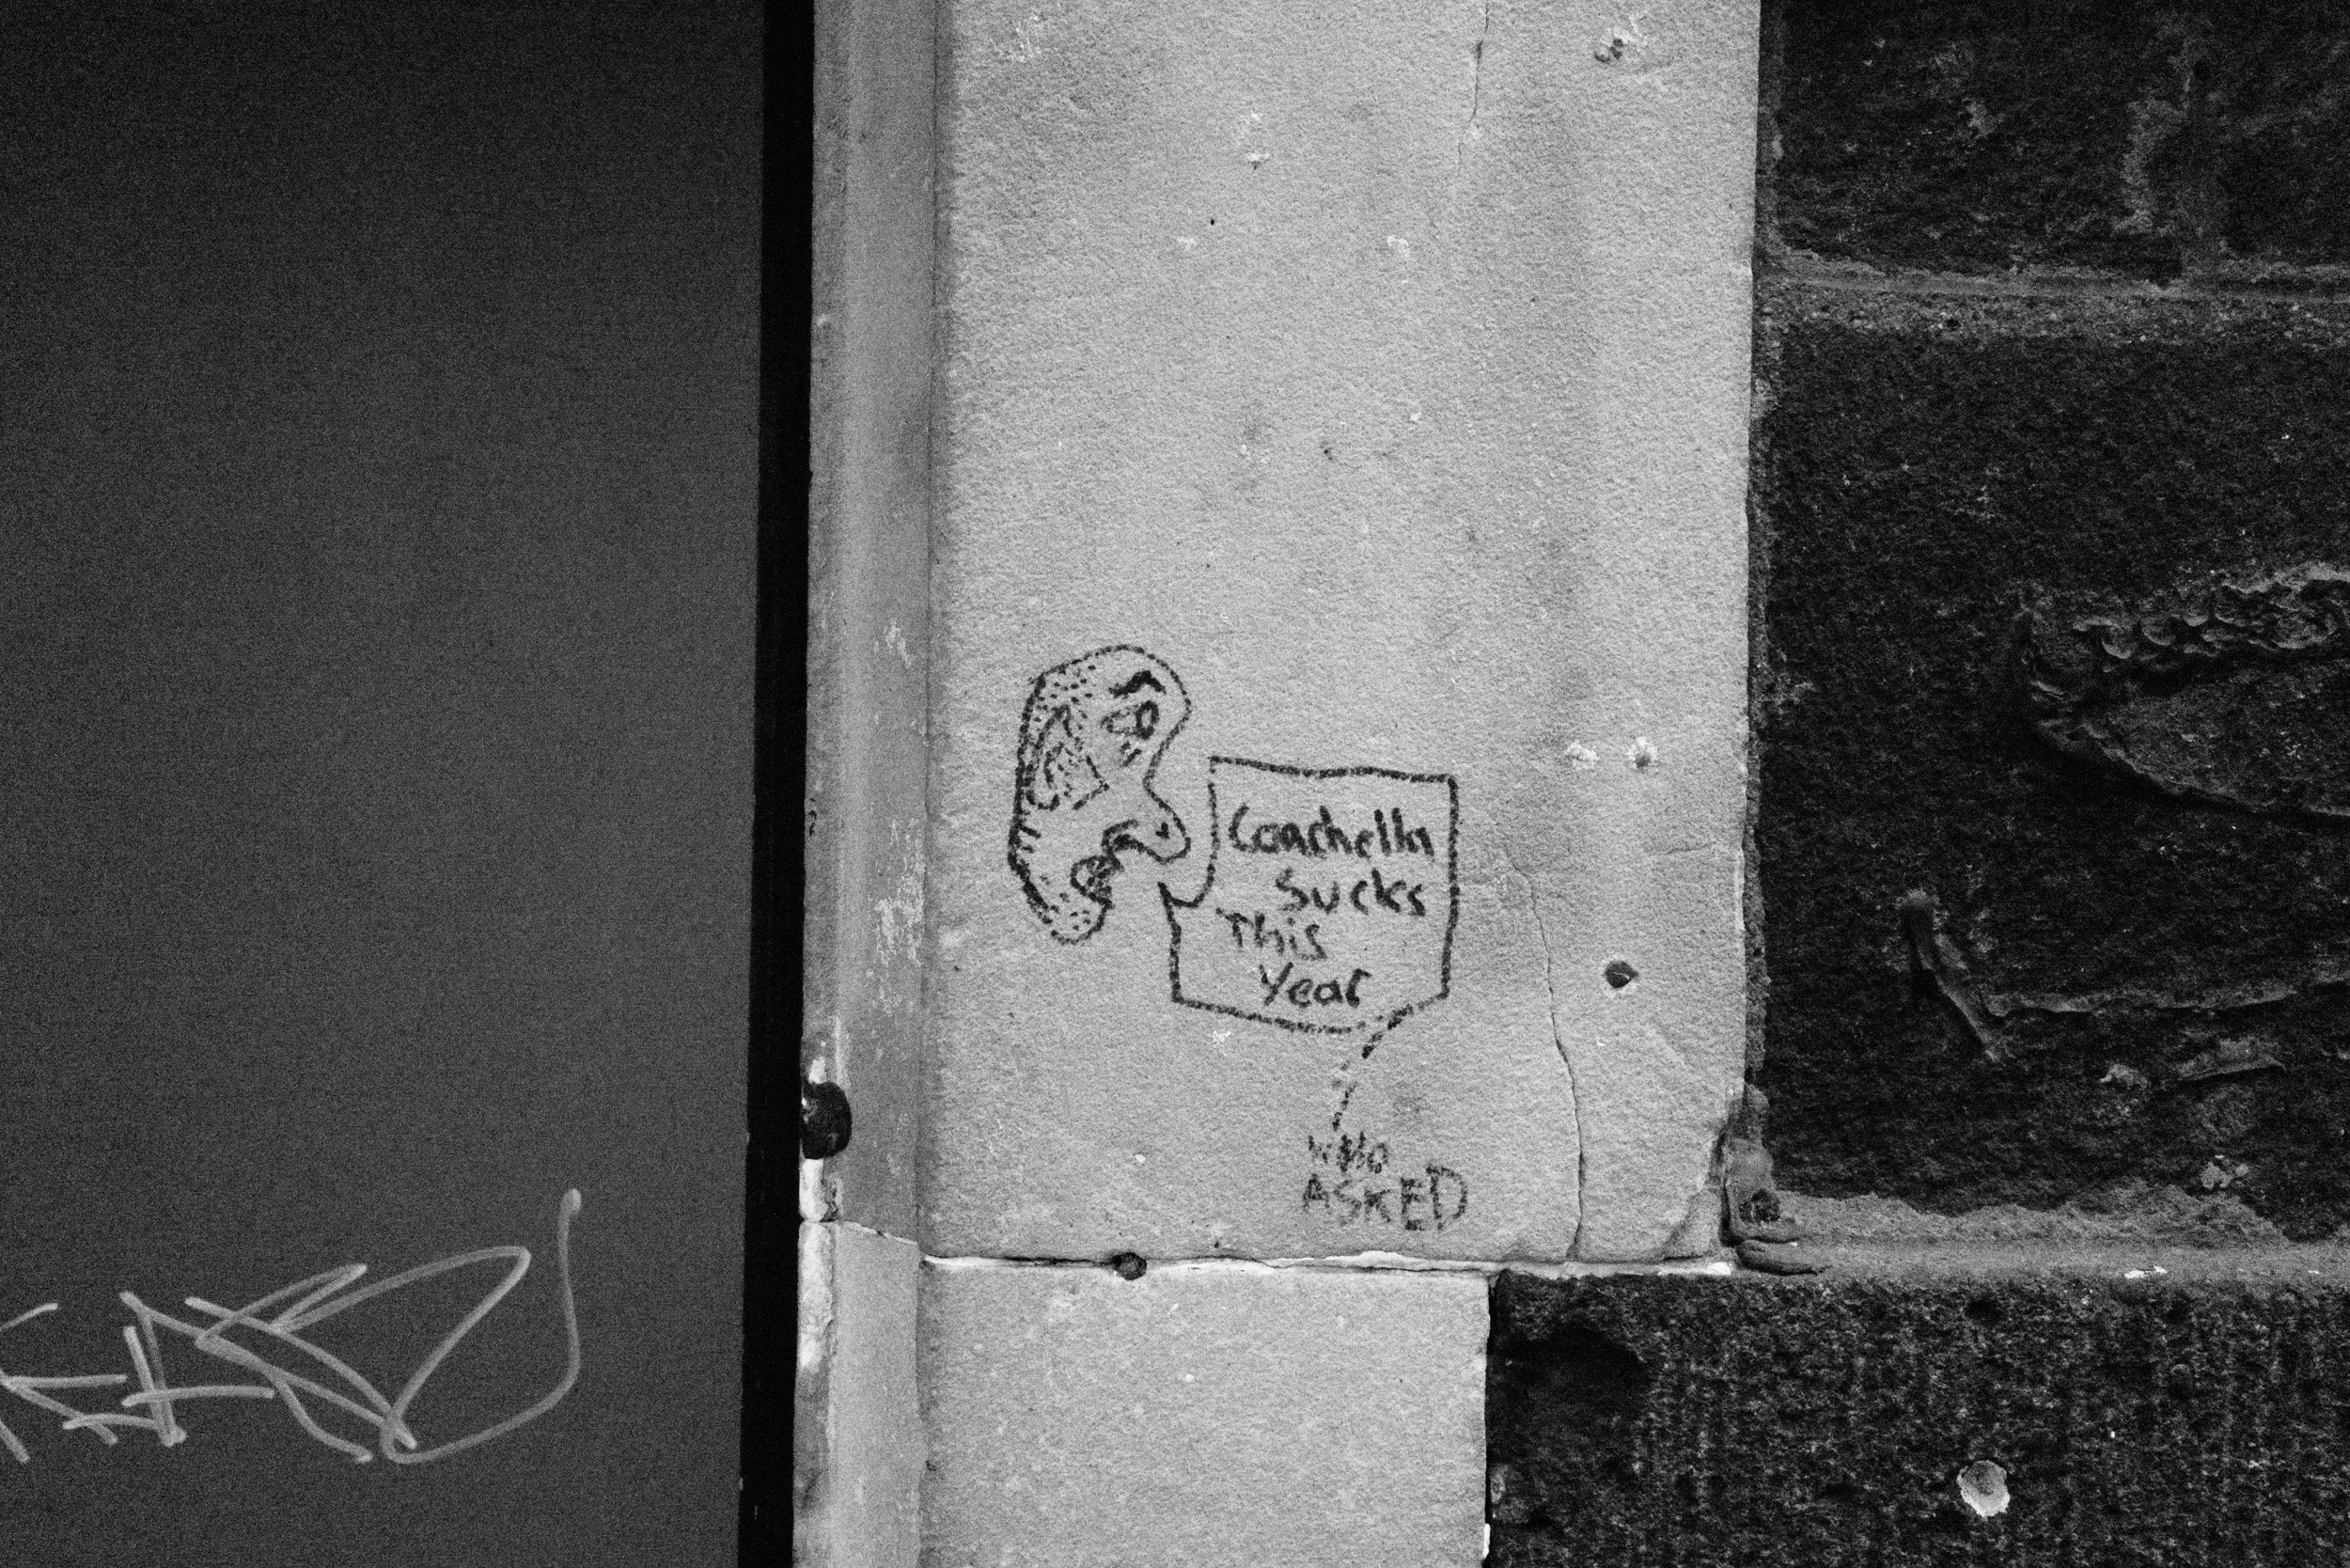 Coachella
Sucks
This
Year
WHO
ASKED